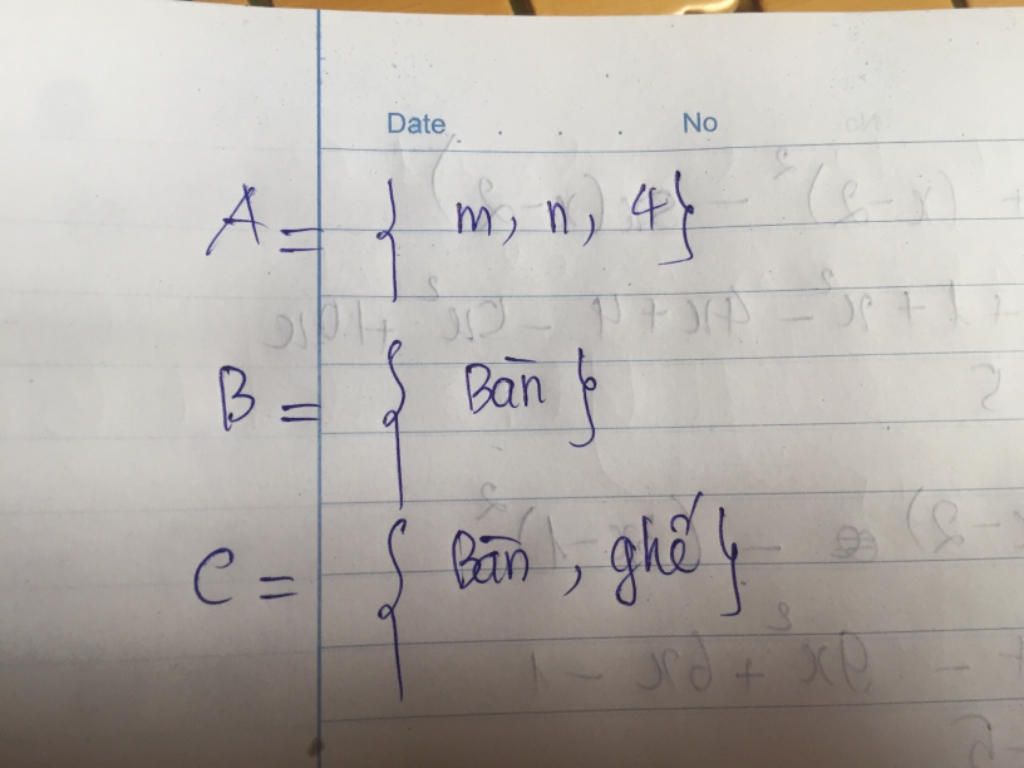 Date . . . No
A = { m, n, 4}
B = { Bàn }
C = { Bàn , ghế }